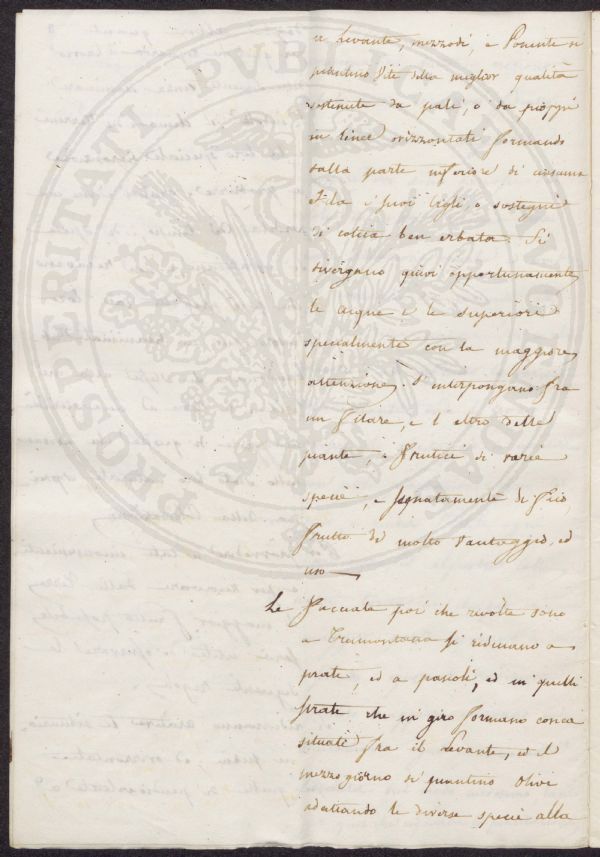 a Levante, mezzodì, e Ponente si
piantino Vite della miglior qualità
sostenute da pali, o da pioppi
in linee orizzontali formando
dalla parte inferiore di ciascuna
Fila i suoi Cigli, o sostegni
di cotica ben erbata. Si
divergano quivi opportunamente
le acque e le superiori
specialmente con la maggiore
attenzione. S'interpongano fra
un Filare, e l'altro delle
piante, e Frutici di varie
specie, e segnatamente di
frutto di molto vantaggio, ed
uso
Le Facciate poi che rivolte sono
a Tramontana si riducano a
prati, ed a pascoli, ed in quelli
strati che in giro formano conca
situati fra il Levante, ed il
mezzogiorno si piantino Olivi
adattando le diverse specie alla
PROSPERITATI PVBLICAE